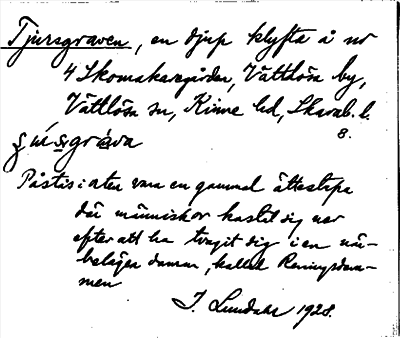 Tjursgraven, en djup klyfta å nr
4 Skomakaregården, Vättlösa by,
Vättlösa sn, Kinne hd, Skarab. l.
8.
Påstås vara en gammal ättestupa
där människor kastat sig ner
efter att ha tvagit sig i en när-
belägen damm, kallad Reningsdam-
men
J. Lundahl 1928.